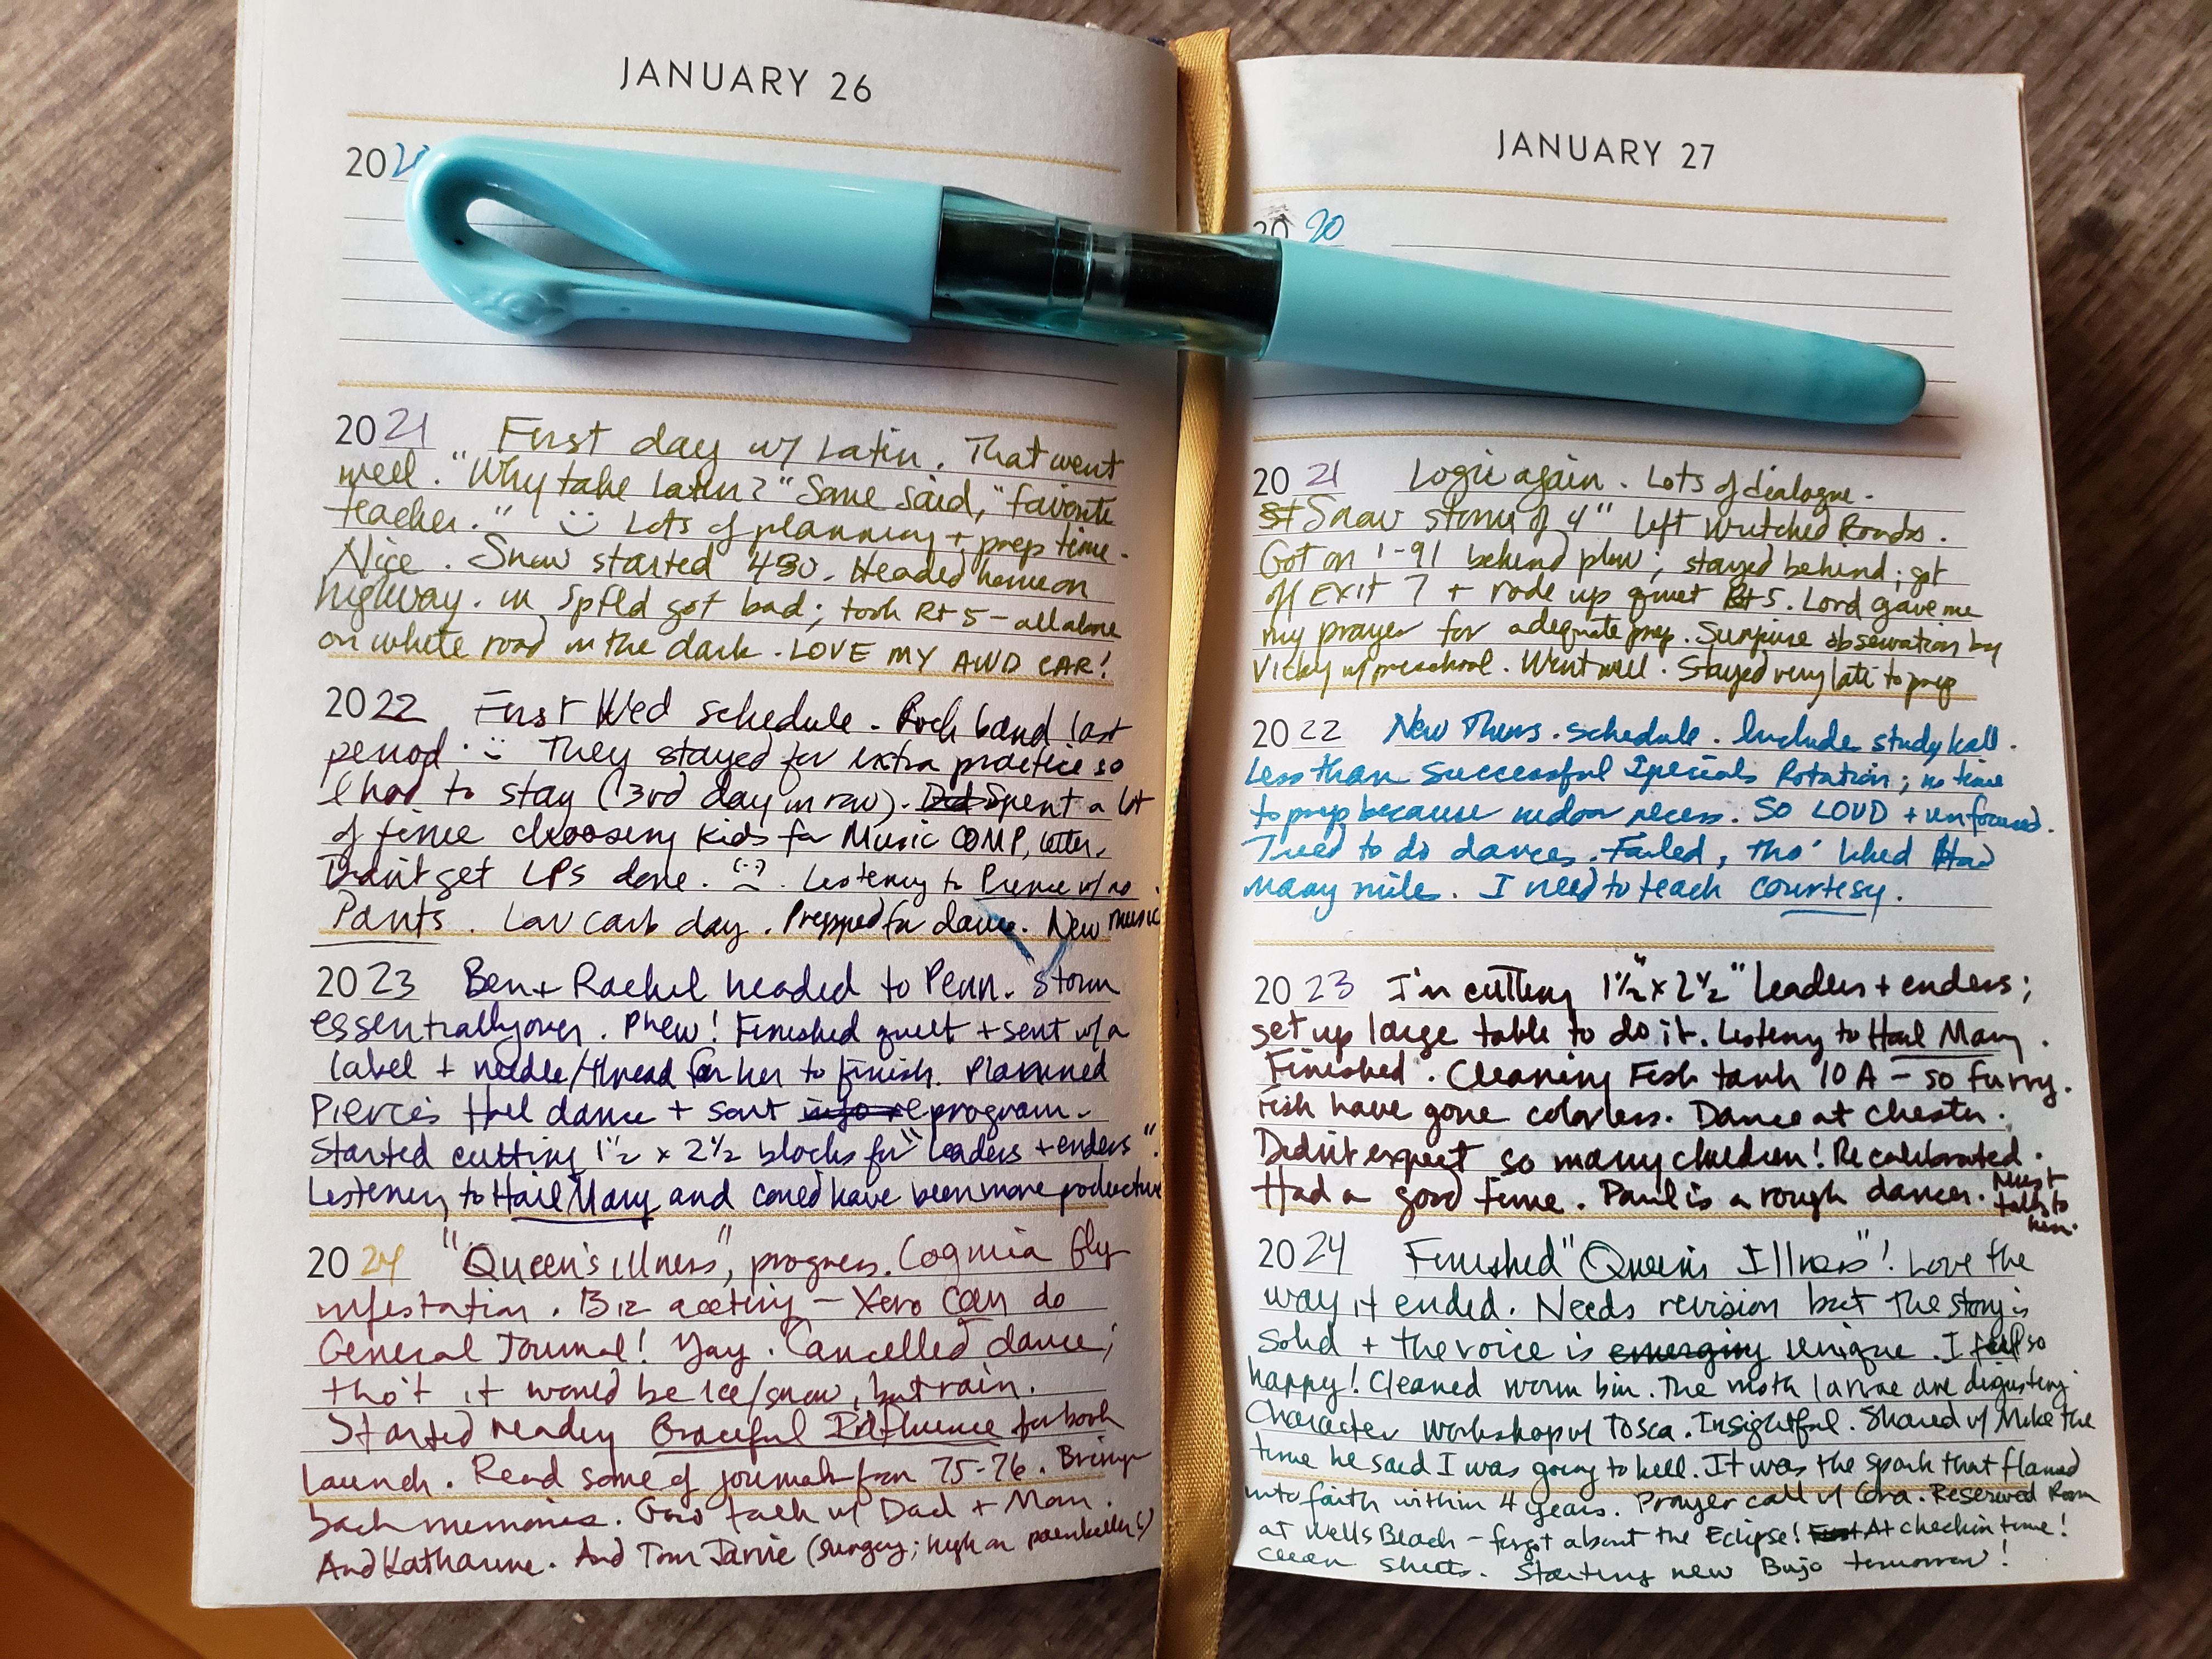 JANUARY 26
20
2021 First day w/ Latin. That went
well. "Why take Latin?" Some said, "favorite
teacher." Lots of planning + prep time.
Nice. Snow started 430. Headed home on
highway. in Spfld got bad; took Rt 5 - all alone
on white road in the dark. LOVE MY AWD CAR!
2022 First Wed schedule. Rock band last
period. They stayed for extra practice so
I had to stay (3rd day in row). Did Spent a lot
of time choosing kids for Music COMP, letter.
Didn't get LPs done. Listening to Prince w/ no
Pants. Low carb day. Prepped for dance. New music
2023 Ben + Rachel headed to Penn. Storm
essentially over. Phew! Finished quilt + sent w/ a
label + needle/thread for her to finish. Planned
Pierce's Hall dance + sent program.
Started cutting 1½ x 2½ blocks for "leaders + enders".
Listening to Hail Mary and could have been more productive
2024 "Queen's Illness", progress. fly
infestation. Biz accting - Xero can do
General Journal! Yay. Cancelled dance;
tho't it would be ice/snow, but rain.
Started reading Graceful Influence for book
launch. Read some of journals from 75-76. Brings
back memories. Good talk w/ Dad + Mom.
And Katharine. And Tom Jarvie (surgery; high on painkillers)
JANUARY 27
2020
2021 Logic again. Lots of dialogue.
St Snow storm of 4" left wretched Roads.
Got on I-91 behind plow; stayed behind; got
off Exit 7 + rode up quiet Rt 5. Lord gave me
my prayer for adequate prep. Surprise observation by
Vicky w/ preschool. Went well. Stayed very late to prep
2022 New Thurs. schedule. Includes study hall.
Less than successful Specials Rotation; no time
to prep because indoor recess. SO LOUD + unfocused.
Tried to do dances. Failed, tho' liked Had
many mile. I need to teach courtesy.
2023 I'm cutting 1½" x 2½" leaders + enders;
set up large table to do it. Listening to Hail Mary.
Finished. Cleaning Fish tank 10A - so furry.
Fish have gone colorless. Dance at Chester.
Didn't expect so many children! Recalibrated.
Had a good time. Paul is a rough dancer. Must
talk to
him.
2024 Finished "Queen's Illness"! Love the
way it ended. Needs revision but the story is
solid + the voice is emerging unique. I feel so
happy! Cleaned worm bin. The moth larvae are disgusting.
Character workshop w/ Tosca. Insightful. Shared w/ Mike the
time he said I was going to hell. It was the spark that flamed
into faith within 4 years. Prayer call w/ Cora. Reserved Room
at Wells Beach - forgot about the Eclipse! At checkin time!
Clean sheets. Starting new Bujo tomorrow!